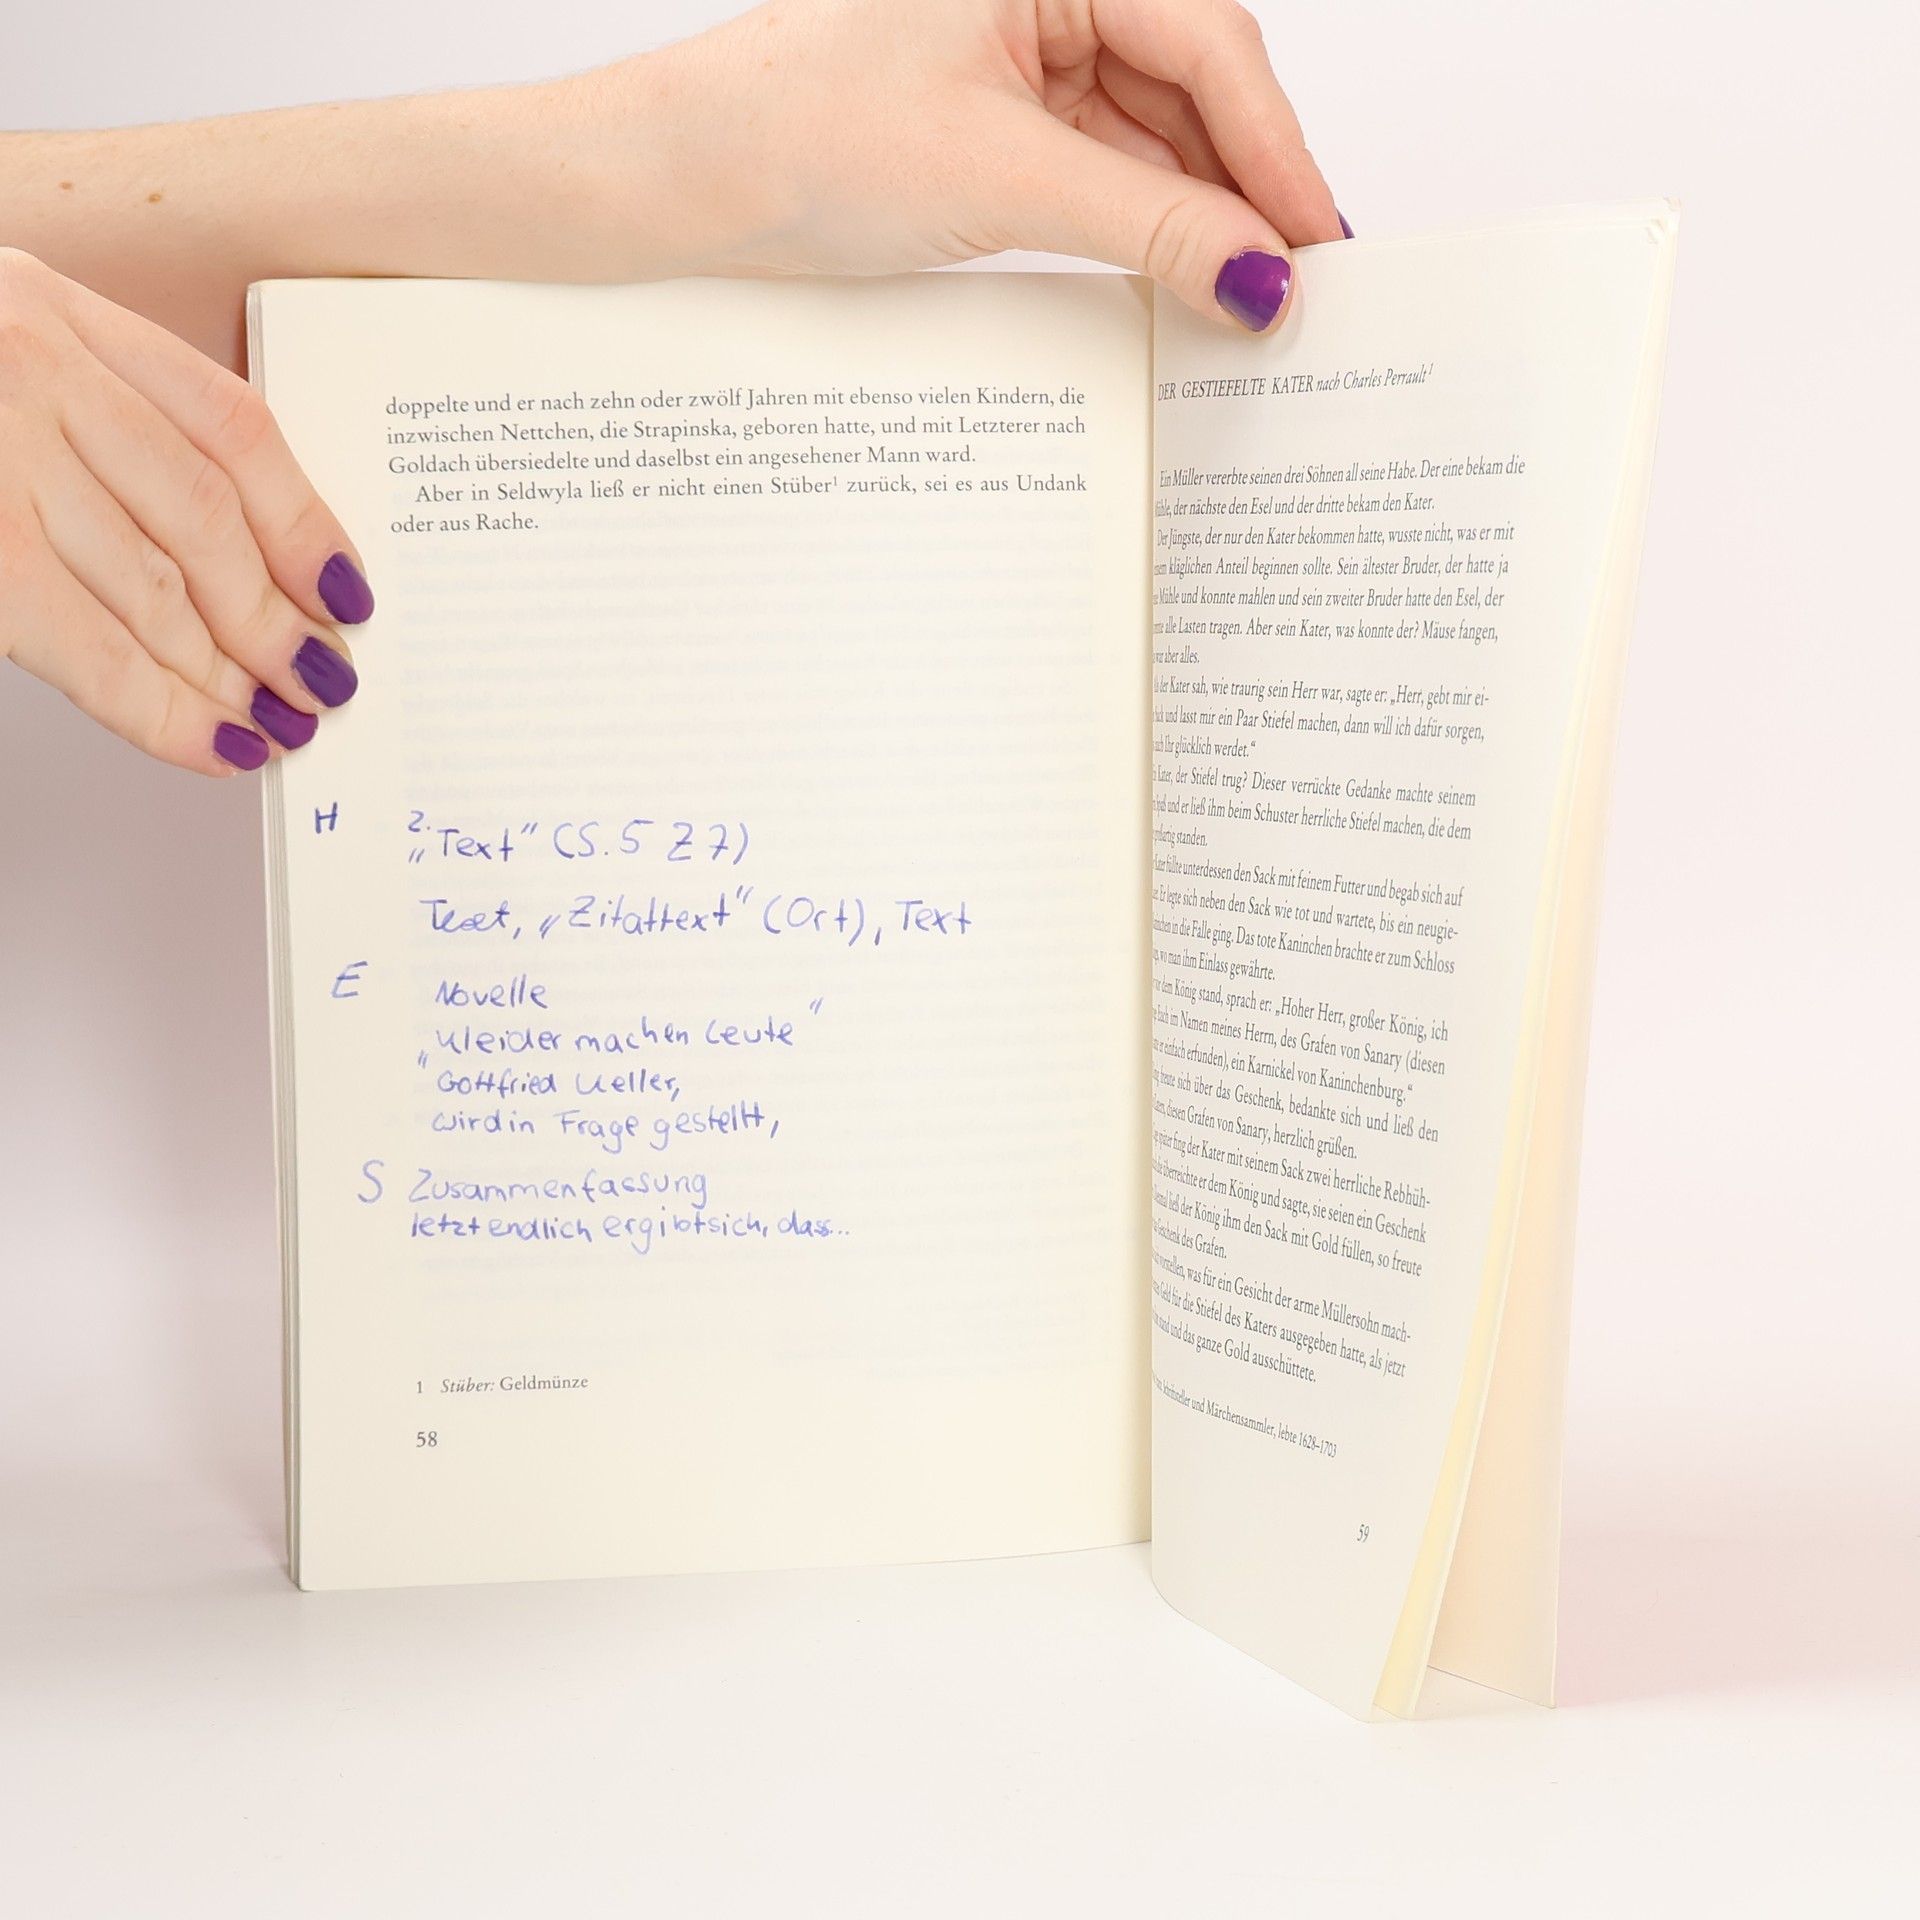 doppelte und er nach zehn oder zwölf Jahren mit ebenso vielen Kindern, die
inzwischen Nettchen, die Strapinska, geboren hatte, und mit Letzterer nach
Goldach übersiedelte und daselbst ein angesehener Mann ward.
Aber in Seldwyla ließ er nicht einen Stüber¹ zurück, sei es aus Undank
oder aus Rache.
H 2.
„Text" (S. 5 Z 7)
Text, „Zitattext" (Ort), Text
E Novelle
„Kleider machen Leute"
Gottfried Keller,
wird in Frage gestellt,
S Zusammenfassung
letztendlich ergibt sich, dass...
1 Stüber: Geldmünze
58
DER GESTIEFELTE KATER nach Charles Perrault¹
Ein Müller vererbte seinen drei Söhnen all seine Habe. Der eine bekam die
der nächste den Esel und der dritte bekam den Kater.
Der Jüngste, der nur den Kater bekommen hatte, wusste nicht, was er mit
kläglichen Anteil beginnen sollte. Sein ältester Bruder, der hatte ja
Mühle und konnte mahlen und sein zweiter Bruder hatte den Esel, der
alle Lasten tragen. Aber sein Kater, was konnte der? Mäuse fangen,
war aber alles.
der Kater sah, wie traurig sein Herr war, sagte er: „Herr, gebt mir ei-
und lasst mir ein Paar Stiefel machen, dann will ich dafür sorgen,
Ihr glücklich werdet."
Kater, der Stiefel trug? Dieser verrückte Gedanke machte seinem
und er ließ ihm beim Schuster herrliche Stiefel machen, die dem
standen.
füllte unterdessen den Sack mit feinem Futter und begab sich auf
Er legte sich neben den Sack wie tot und wartete, bis ein neugie-
in die Falle ging. Das tote Kaninchen brachte er zum Schloss
wo man ihm Einlass gewährte.
dem König stand, sprach er: „Hoher Herr, großer König, ich
Euch im Namen meines Herrn, des Grafen von Sanary (diesen
er einfach erfunden), ein Karnickel von Kaninchenburg."
freute sich über das Geschenk, bedankte sich und ließ den
diesen Grafen von Sanary, herzlich grüßen.
später fing der Kater mit seinem Sack zwei herrliche Rebhüh-
überreichte er dem König und sagte, sie seien ein Geschenk
ließ der König ihm den Sack mit Gold füllen, so freute
Geschenk des Grafen.
vorstellen, was für ein Gesicht der arme Müllersohn mach-
Geld für die Stiefel des Katers ausgegeben hatte, als jetzt
stand und das ganze Gold ausschüttete.
Schriftsteller und Märchensammler, lebte 1628–1703
59